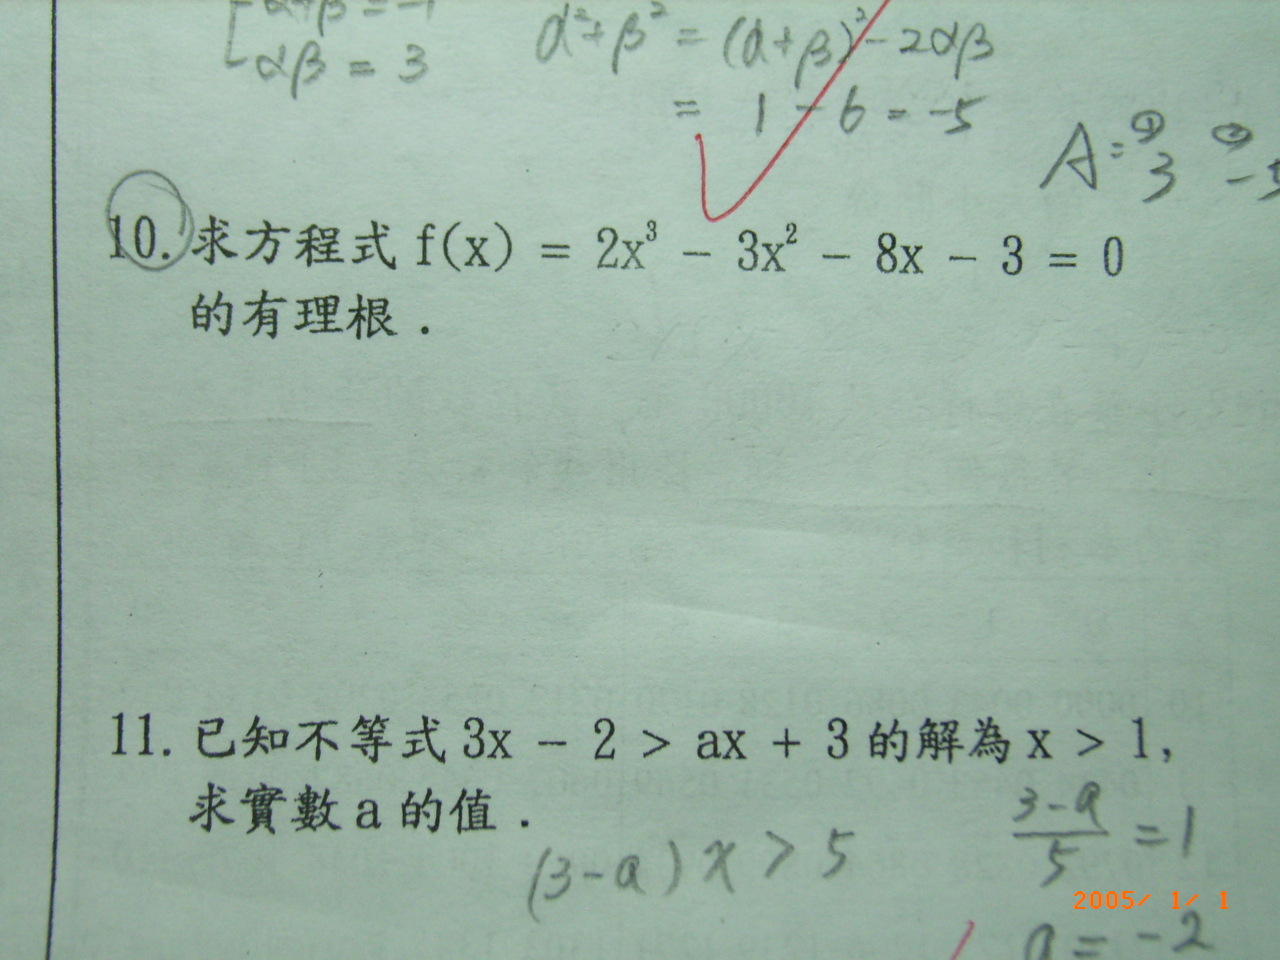 α+β = -1
αβ = 3
α²+β² = (α+β)² - 2αβ
= 1 - 6 = -5
A = ① 3 ② -5
10. 求方程式 f(x) = 2x³ - 3x² - 8x - 3 = 0
的有理根.
11. 已知不等式 3x - 2 > ax + 3 的解為 x > 1,
求實數 a 的值.
(3-a) x > 5
3-a/5 = 1
2005/ 1/ 1
a = -2